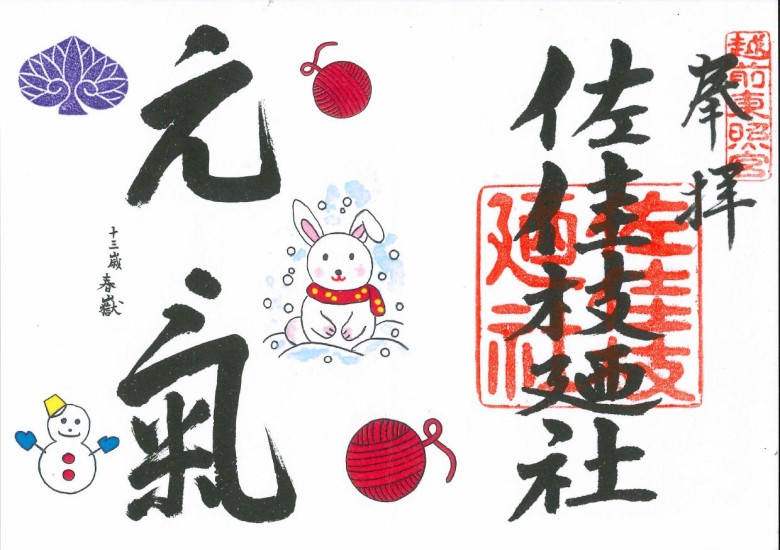 越前東照宮
奉拝
佐佳枝廼社
佐佳枝
廼社
元氣
十三歳 春嶽